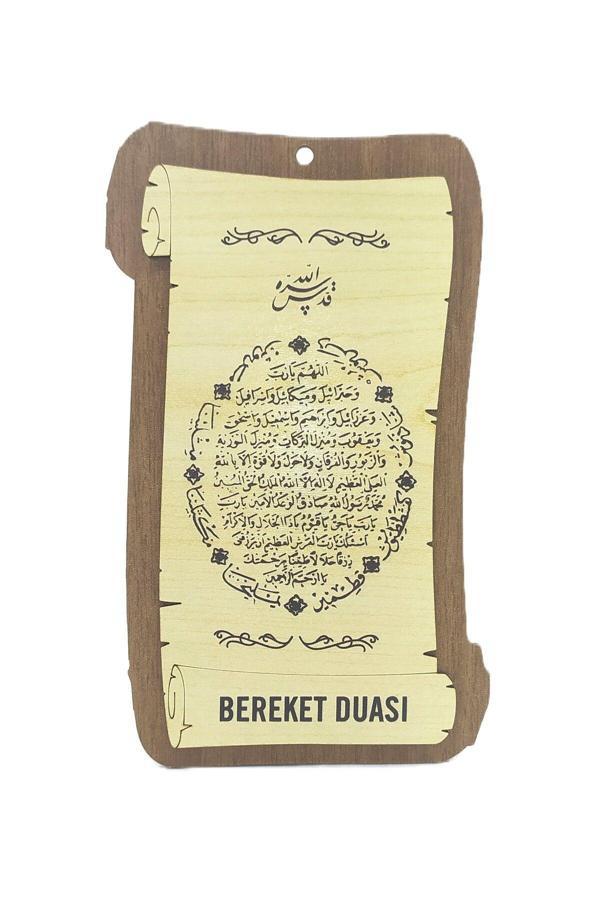 قدس الله سره
اللهم يارب
وجبرائيل وميكائيل واسرافيل
وعزرائيل وابراهيم واسمعيل واسحق
ويعقوب ومنزل البركات ومنزل التورية
والزبور والفرقان ولاحول ولا قوة الا بالله
العلي العظيم لا اله الا الله الملك الحق المبين
محمد رسول الله صادق الوعد الامين يارب
يارب ياحي ياقيوم ياذا الجلال والاكرام
اسئلك يارب العرش العظيم ان ترزقني
رزقا حلالا طيبا برحمتك
يا ارحم الراحمين
يمليخا
قطمير
BEREKET DUASI